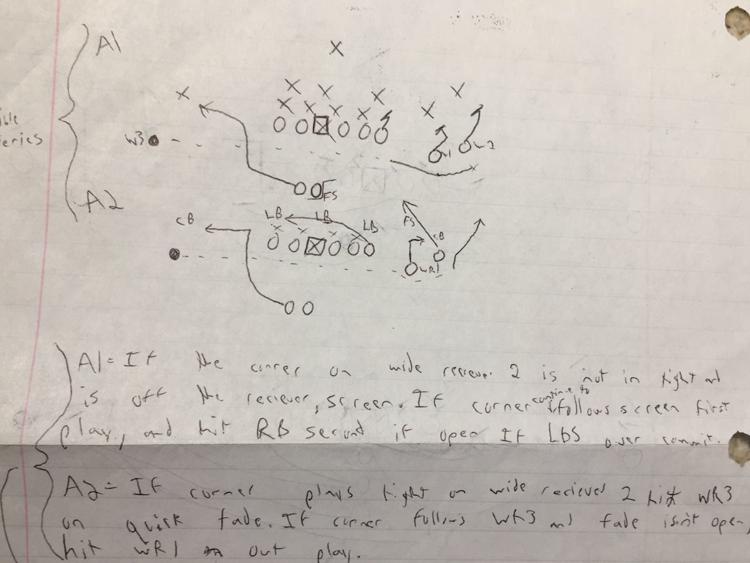 A1
W3
WR1
WR2
FS
A2
CB
LB
LB
LB
FS
CB
WR1
A1= If the corner on wide reciever 2 is not in tight and
is off the reciever, screen. If corner continue to follows screen first
play, and hit RB second if open If Lbs over commit.
A2= If corner plays tight on wide reciever 2 hit WR3
on quick fade. If corner follows WR3 and fade isn't open,
hit WR1 on out play.